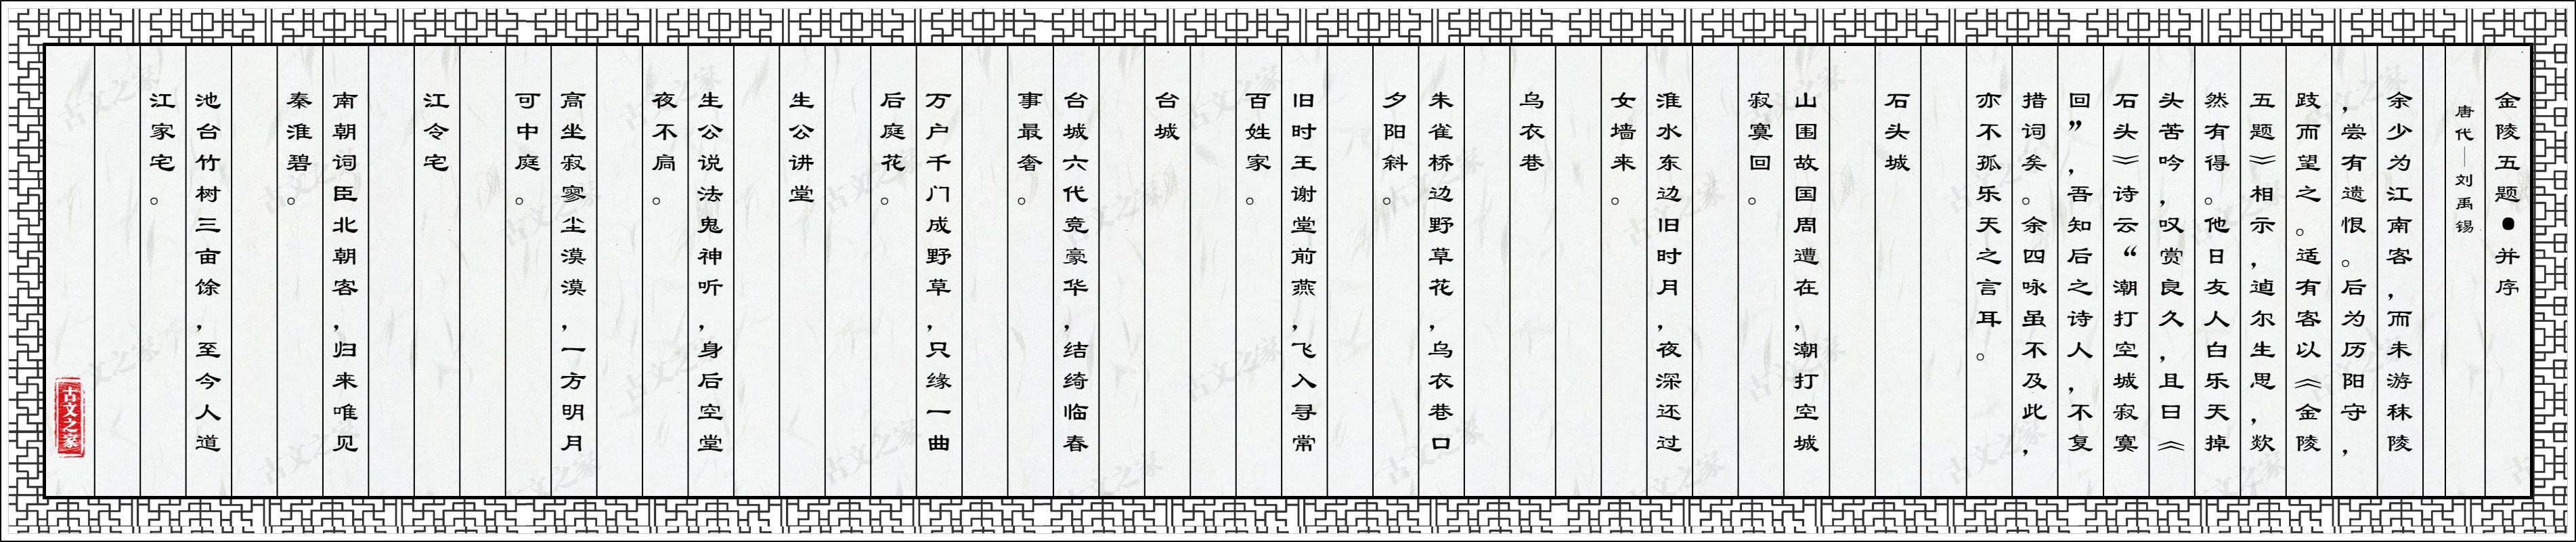 金陵五题●并序
唐代—刘禹锡
余少为江南客，而未游秣陵
，尝有遗恨。后为历阳守，
跂而望之。适有客以《金陵
五题》相示，逌尔生思，欻
然有得。他日友人白乐天掉
头苦吟，叹赏良久，且曰《
石头》诗云“潮打空城寂寞
回”，吾知后之诗人，不复
措词矣。余四咏虽不及此，
亦不孤乐天之言耳。
石头城
山围故国周遭在，潮打空城
寂寞回。
淮水东边旧时月，夜深还过
女墙来。
乌衣巷
朱雀桥边野草花，乌衣巷口
夕阳斜。
旧时王谢堂前燕，飞入寻常
百姓家。
台城
台城六代竞豪华，结绮临春
事最奢。
万户千门成野草，只缘一曲
后庭花。
生公讲堂
生公说法鬼神听，身后空堂
夜不扃。
高坐寂寥尘漠漠，一方明月
可中庭。
江令宅
南朝词臣北朝客，归来唯见
秦淮碧。
池台竹树三亩馀，至今人道
江家宅。
古文之家